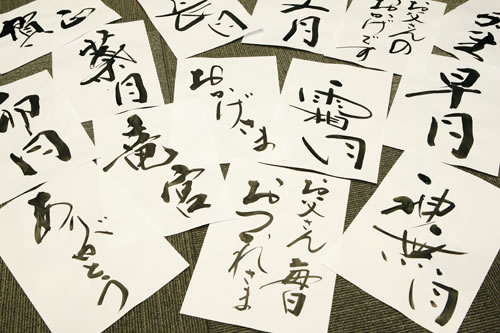 長月
文月
お父さんの
おかげです
卯月
葉月
おかげさま
霜月
早月
竜宮
ありがとう
お父さん毎日
おつかれさま
神無月